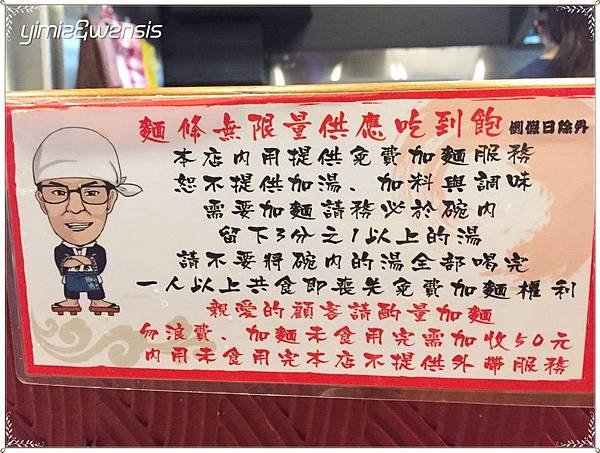 yimia&wensis
麵條無限量供應吃到飽 例假日除外
本店內用提供免費加麵服務
恕不提供加湯、加料與調味
需要加麵請務必於碗內
留下3分之1以上的湯
請不要將碗內的湯全部喝完
一人以上共食即喪失免費加麵權利
親愛的顧客請酌量加麵
勿浪費、加麵未食用完需加收50元
內用未食用完本店不提供外帶服務